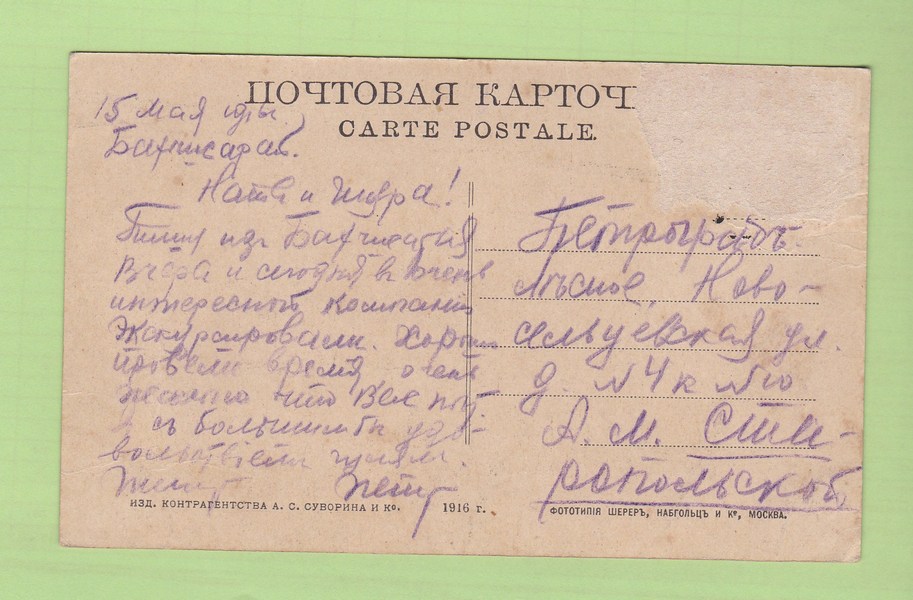 ПОЧТОВАЯ КАРТОЧ
CARTE POSTALE.
15 мая
Бахчисарай.
Ната и Шура!
Пишу изъ Бахчисарая
Вчера и сегодня въ очень
интересной компании
Экскурсировали. Хорошо
провели время очень
что Вас
съ большимъ удо-
вольствіем
Петр
Петроградъ.
Лѣсное, Ново-
сельцевская ул.
д. N 4 к N 10
А. М. Став-
ропольской
ИЗД. КОНТРАГЕНТСТВА А. С. СУВОРИНА И Ко. 1916 г.
ФОТОТИПІЯ ШЕРЕРЪ, НАБГОЛЬЦЪ И Ко, МОСКВА.